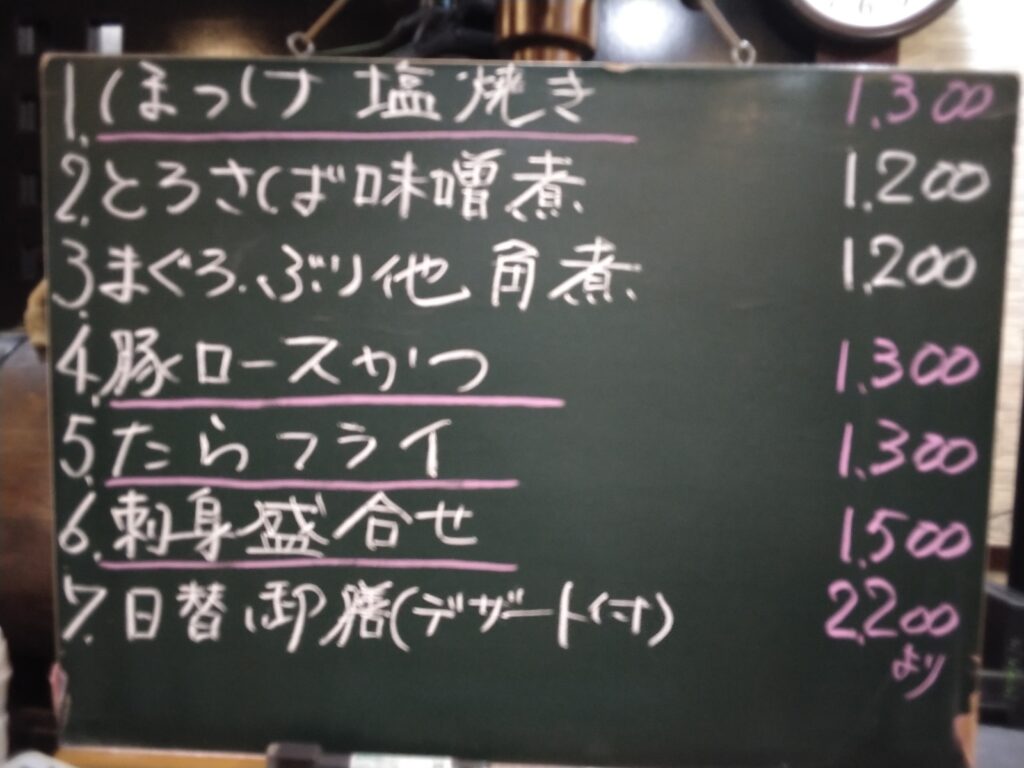 1. ほっけ 塩焼き 1,300
2. とろさば味噌煮 1,200
3. まぐろ、ぶり他 角煮 1,200
4. 豚ロースかつ 1,300
5. たらフライ 1,300
6. 刺身盛合せ 1,500
7. 日替御膳(デザート付) 2,200
より